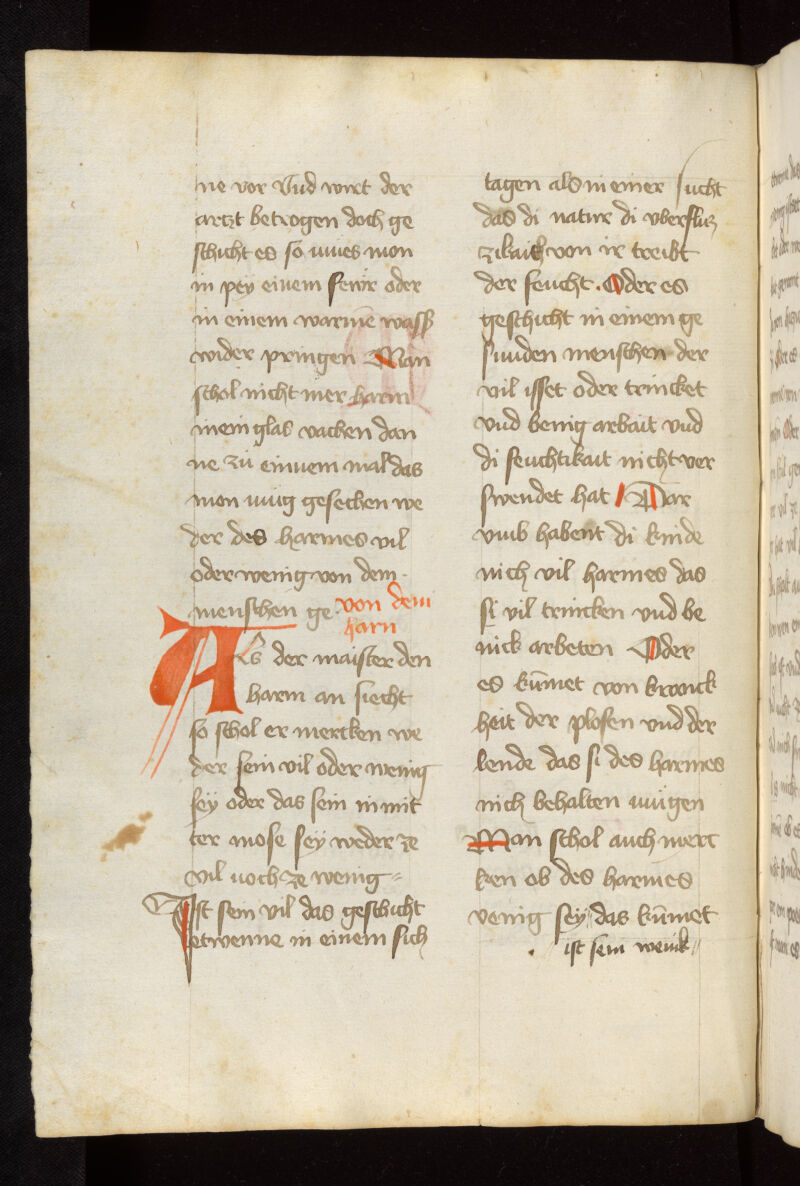 ne vor Vnd wirt der
artzt betrogen doch ge
schicht es so mues mon
in pey einem fewr oder
in einem warmē wass
wider pringen Man
schol nicht mer harm
in ein glas vachen dan
ne zu einuem mal das
mon mug gesechen we
der des harmes vil
oder wenig von dem
menschen ge von dem
harn
Als der maister den
harm an siecht
so schol er mercken we
der sein vil oder wenig
sey oder das sein in mit
ter mose sey weder ze
vil noch ze wenig
Ist sein vil das geschicht
etwenne in einem sich
tagen als in einer sucht
das di natur di vberfluz
zikait von ir treibt
der feucht. Oder es
geschicht in einem ge
sunden menschen der
vil isset oder trincket
vnd benig arbait vnd
di feuchtikait nicht ver
swendet hat Dar
vmb habent di kinde
nich vil harmes das
si vil trincken vnd be
nick arbeten Oder
es kūmet von kronck
heit der plosen vnd der
lende das si des harmes
nich behalten mugen
Man schol auch merc
ken ob des harmes
venig sey das kūmet
ist sein wenik